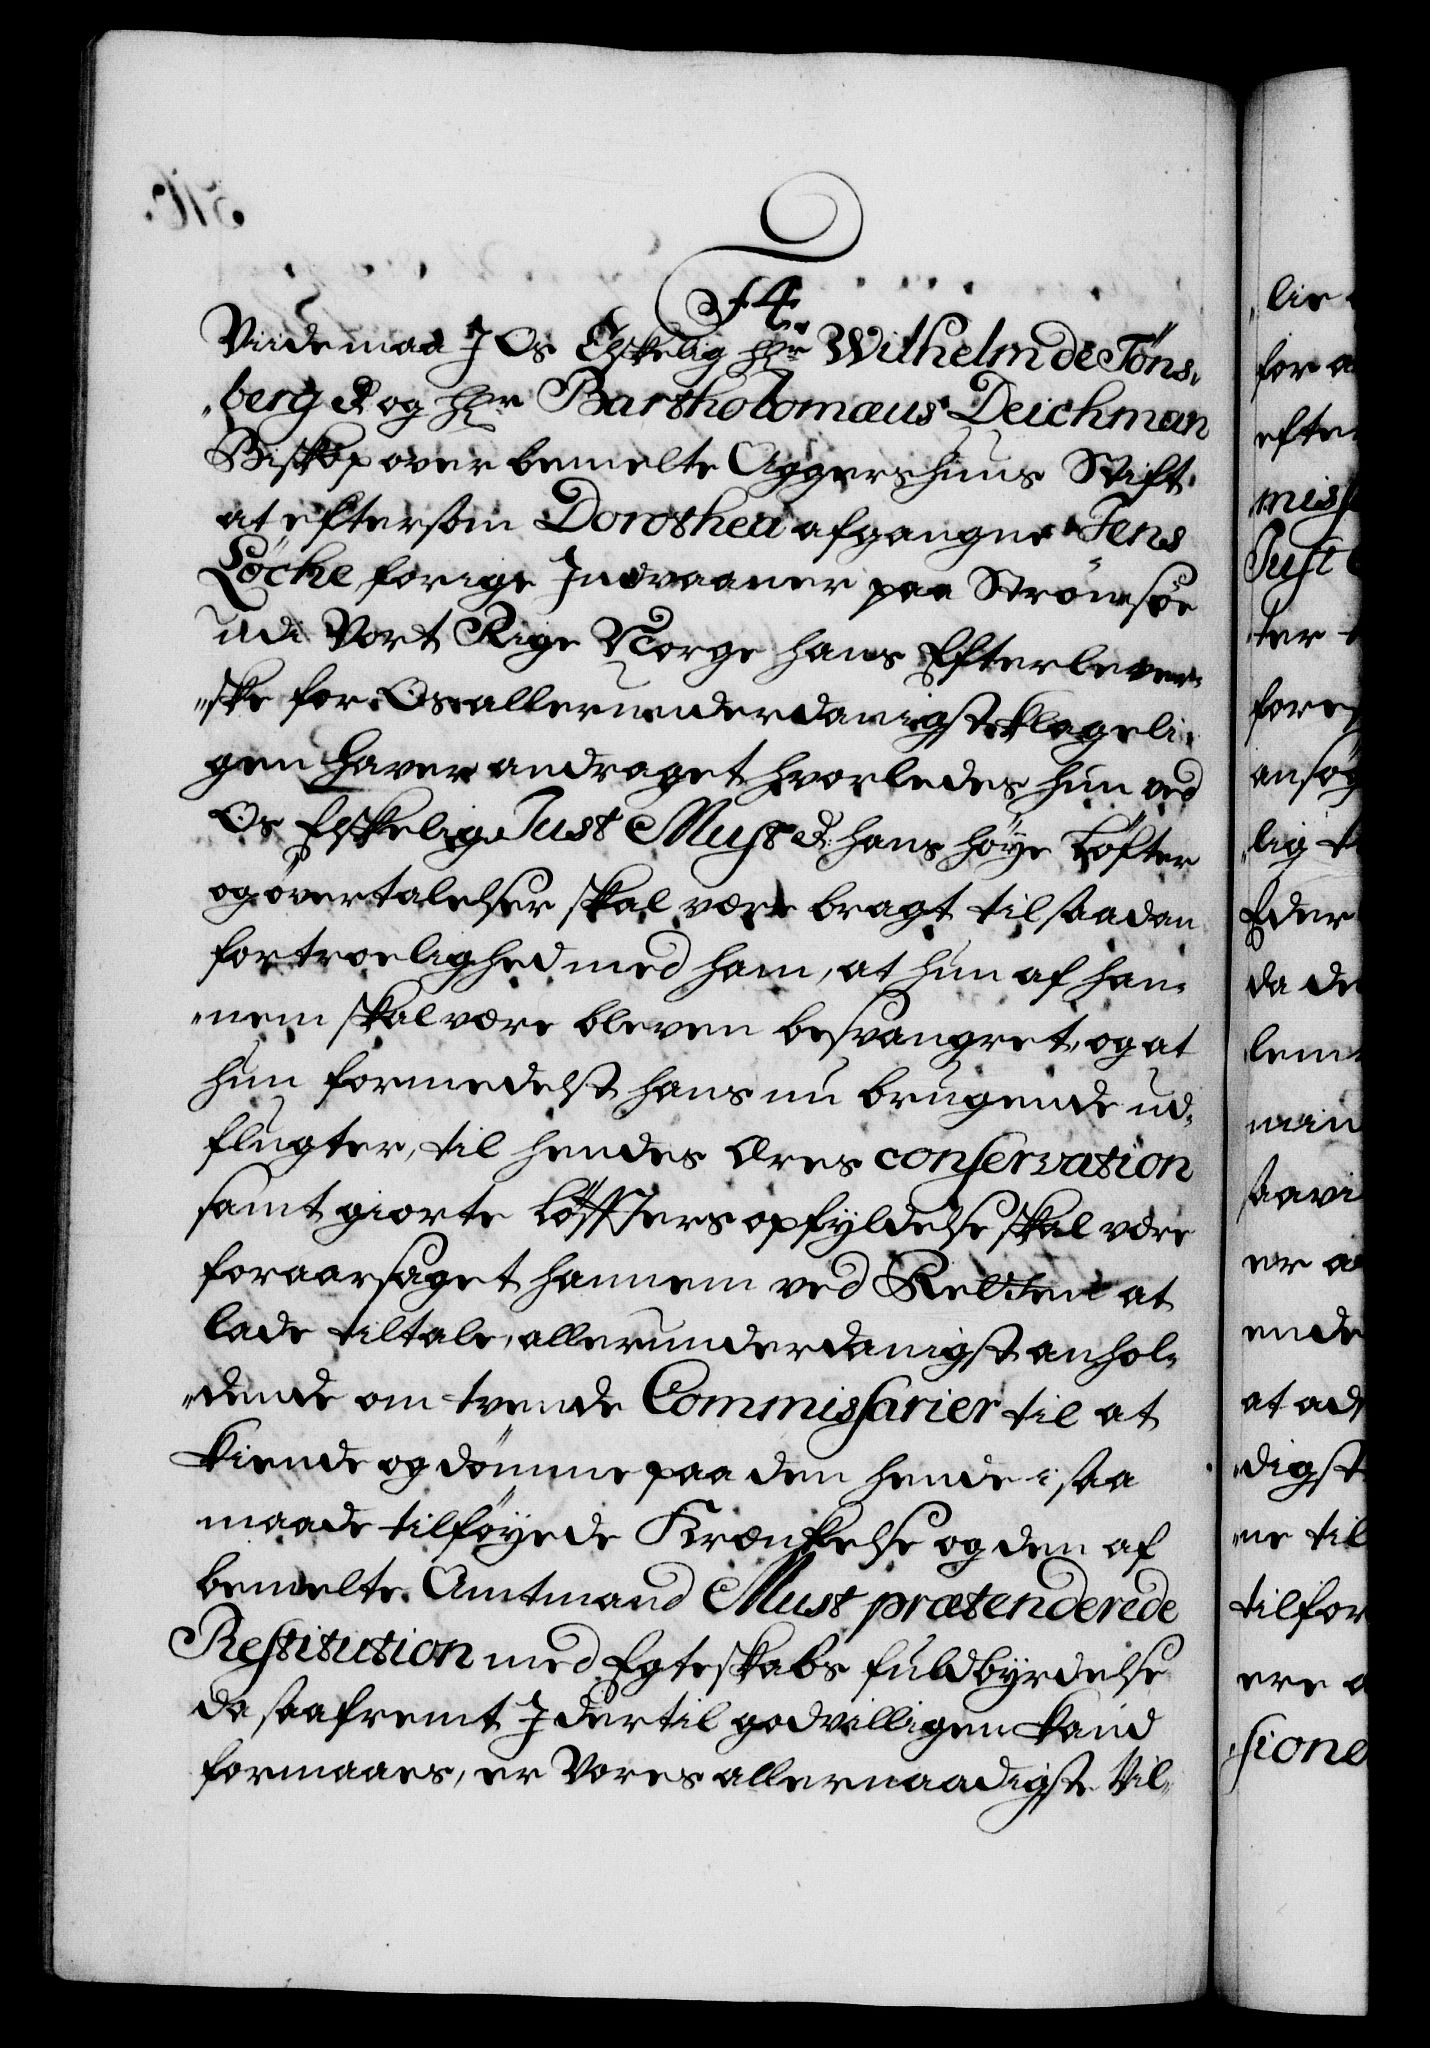 F 4.
Viide maa I Os Elskelig Hr Wilhelm de Töns-
berg R og Hr Bartholomæus Deichman
Biskop over bemelte Aggershuus Stift
at eftersom Dorothea afgangne Jens
Löcke forige Indvaaner paa Strömsöe
udi Vort Rige Norge hans Efterlever-
ske for Os allerunderdanigst klageli-
gen haver andraget hvorledes hun ved
Os Elskelig Just Must R: hans höye Löfter
og overtalelser skal være bragt til saadan
fortroelighed med ham, at hun af han-
nem skal være bleven besvangret, og at
hun formedelst hans nu brugende ud-
flugter, til hendes Æres conservation
samt giorte Löffters opfyldelse skal være
foraarsaget hannem ved Retten at
lade tiltale, allerunderdanigst anhol-
dende om tvende Commissarier til at
kiende og dömme paa den hende i saa
maade tilföyede Krænkelse og den af
bemelte Amtmand Must prætenderede
Restitution med Egteskabs fuldbyrdelse
da saafremt I dertil godvilligen kand
formaaes, er Vores allernaadigste Vil-